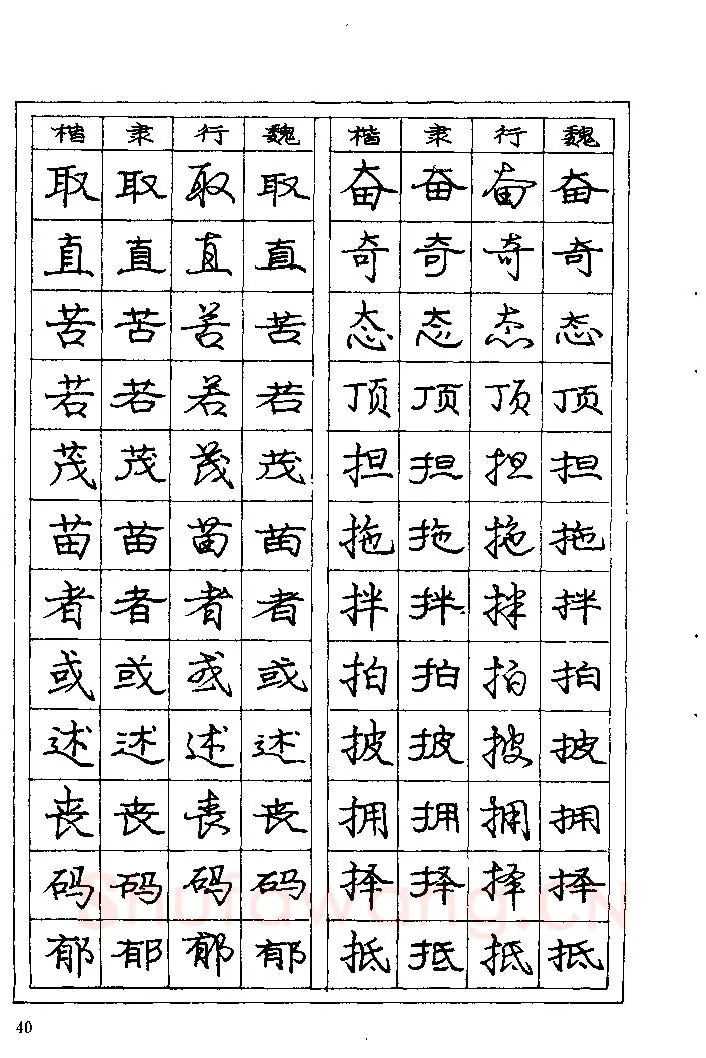 楷 隶 行 魏 楷 隶 行 魏
取 取 取 取 奋 奋 奋 奋
直 直 直 直 奇 奇 奇 奇
苦 苦 苦 苦 态 态 态 态
若 若 若 若 顶 顶 顶 顶
茂 茂 茂 茂 担 担 担 担
苗 苗 苗 苗 拖 拖 拖 拖
者 者 者 者 拌 拌 拌 拌
或 或 或 或 拍 拍 拍 拍
述 述 述 述 披 披 披 披
丧 丧 丧 丧 拥 拥 拥 拥
码 码 码 码 择 择 择 择
Shufawang.CN
郁 郁 郁 郁 抵 抵 抵 抵
40